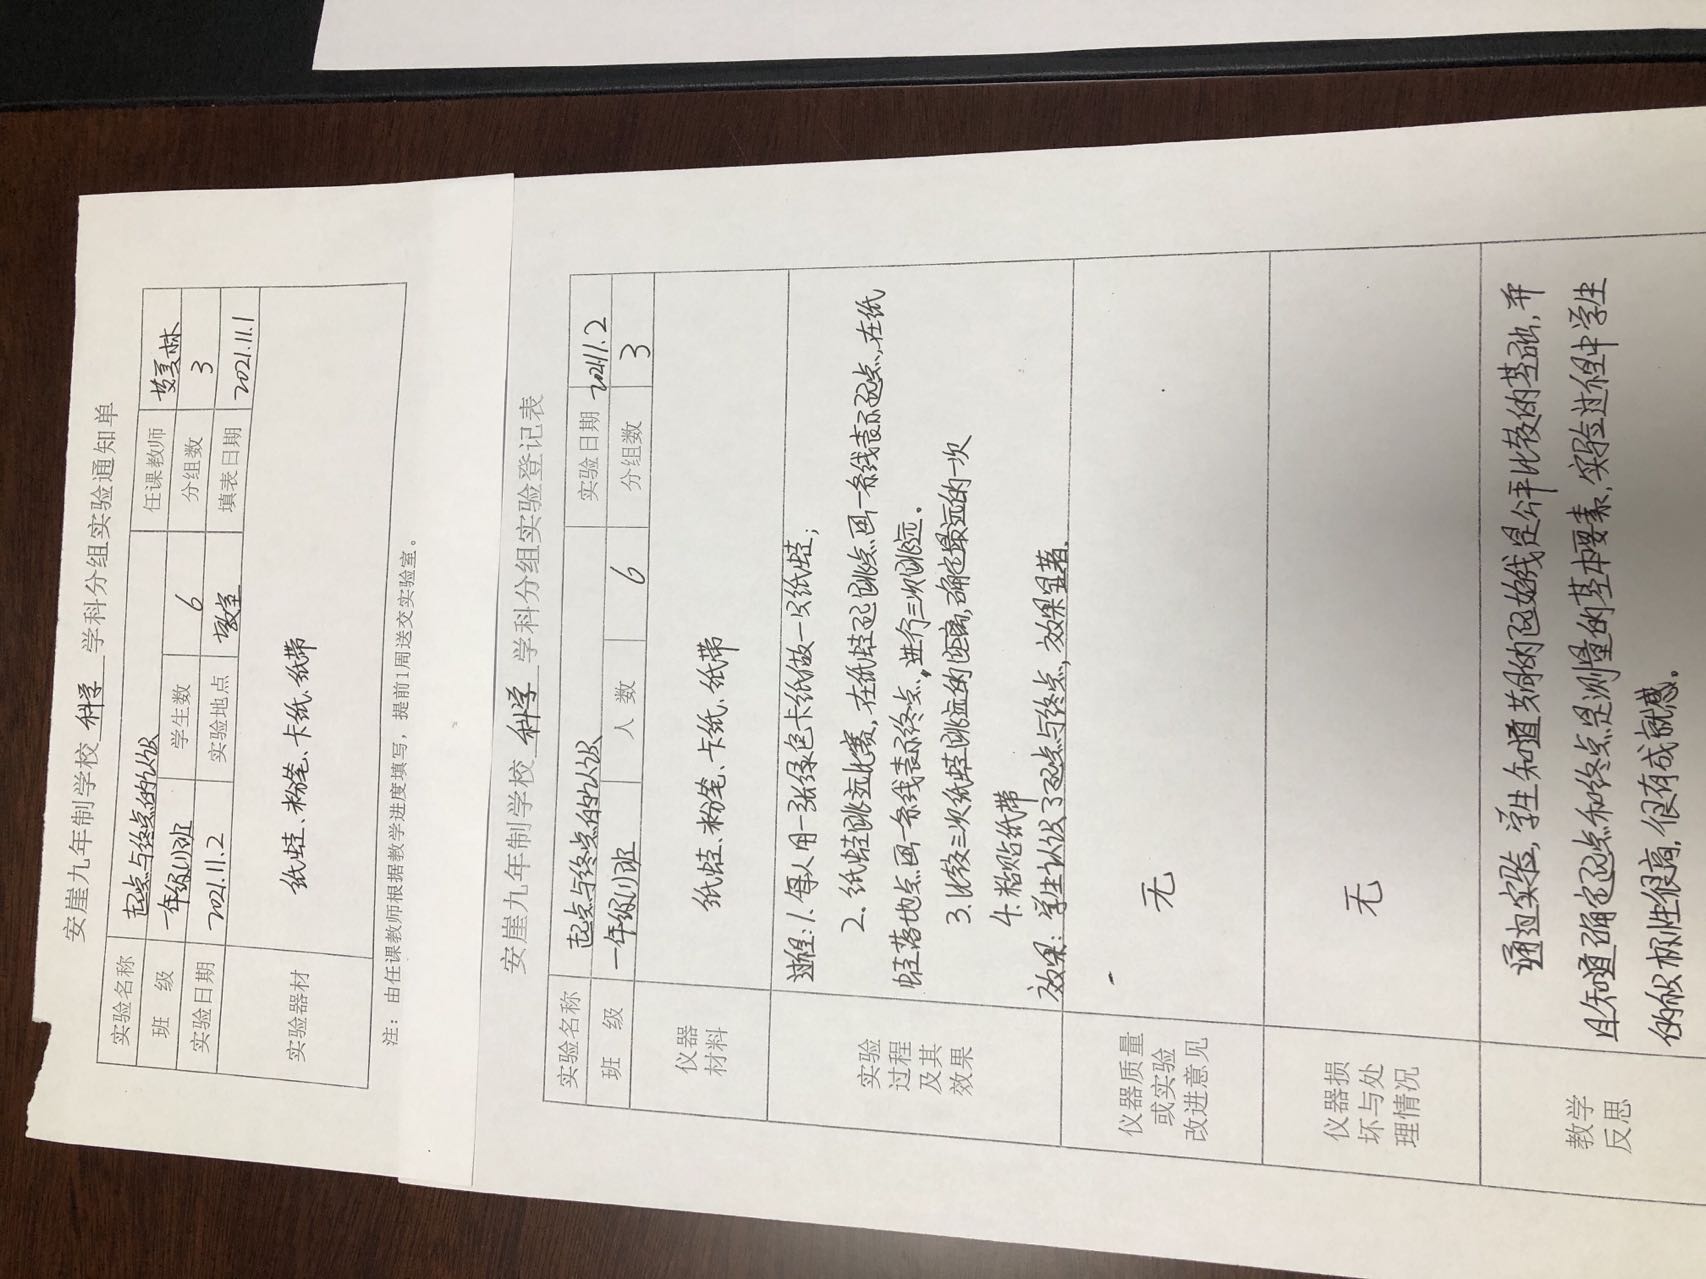 安崖九年制学校 科学 学科分组实验通知单
实验名称 起点与终点的认识 任课教师
班 级 一年级(1)班 学生数 6 分组数 3
实验日期 2021.11.2 实验地点 教室 填表日期 2021.11.1
实验器材 纸蛙、粉笔、卡纸、纸带
注：由任课教师根据教学进度填写，提前1周送交实验室。
安崖九年制学校 科学 学科分组实验登记表
实验名称 起点与终点的认识 实验日期 2021.11.2
班 级 一年级(1)班 人 数 6 分组数 3
仪器
材料
纸蛙、粉笔、卡纸、纸带
实验
过程
及其
效果
过程：1.每人用一张绿色卡纸做一只纸蛙；
2.纸蛙跳远比赛，在纸蛙起跳点画一条线表示起点，在纸
蛙落地点画一条线表示终点，进行三次跳远。
3.比较三次纸蛙跳远的距离，确定最远的一次
4.粘贴纸带
效果：学生认识了起点与终点，效果显著。
仪器质量
或实验
改进意见
无
仪器损
坏与处
理情况
无
教学
反思
通过实验，学生知道共同的起始线是公平比较的基础，并
且知道确定起点和终点是测量的基本要素，实验过程中学生
的积极性很高，很有成就感。